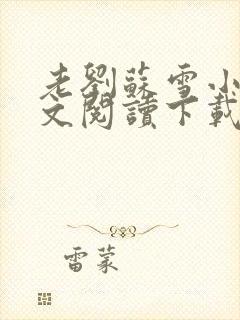 老劉蘇雪小
文閱讀下載
雷蒙